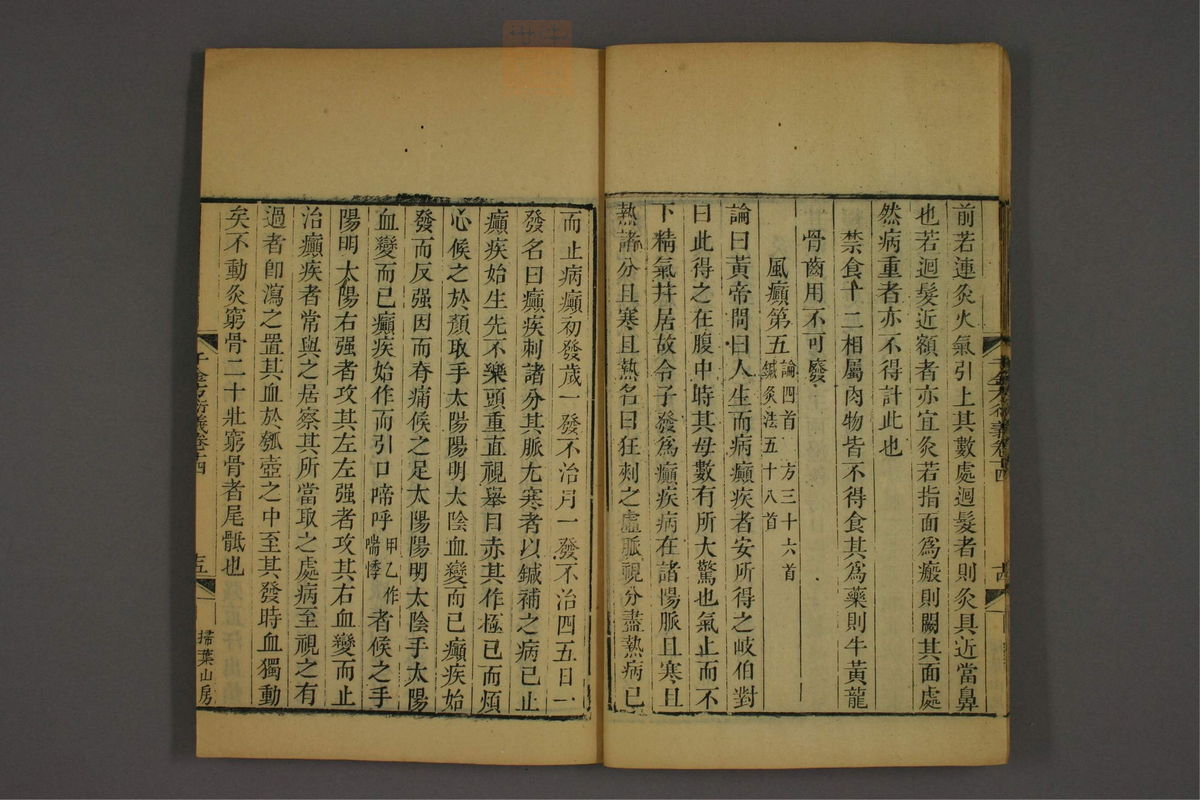 前若連灸火氣引上其數處迴髮者則灸具近當鼻
也若迴髮近額者亦宜灸若指面爲瘢則闕其面處
然病重者亦不得計此也
禁食十二相屬肉物皆不得食其爲藥則牛黃龍
骨齒用不可廢
風癲第五 論四首 方三十六首
鍼灸法五十八首
論曰黃帝問曰人生而病癲疾者安所得之岐伯對
曰此得之在腹中時其母數有所大驚也氣止而不
下精氣幷居故令子發爲癲疾病在諸陽脈且寒且
熱諸分且寒且熱名曰狂刺之虛脈視分盡熱病已
千金方衍義卷十四
十四
而止病癲初發歲一發不治月一發不治四五日一
發名曰癲疾刺諸分其脈尤寒者以鍼補之病已止
癲疾始生先不樂頭重直視舉目赤其作極已而煩
心候之於顏取手太陽陽明太陰血變而已癲疾始
發而反强因而脊痛候之足太陽陽明太陰手太陽
血變而已癲疾始作而引口啼呼 甲乙作
喘悸 者候之手
陽明太陽右强者攻其左左强者攻其右血變而止
治癲疾者常與之居察其所當取之處病至視之有
過者卽瀉之置其血於瓠壺之中至其發時血獨動
矣不動灸窮骨二十壯窮骨者尾骶也
千金方衍義卷十四
十五
掃葉山房